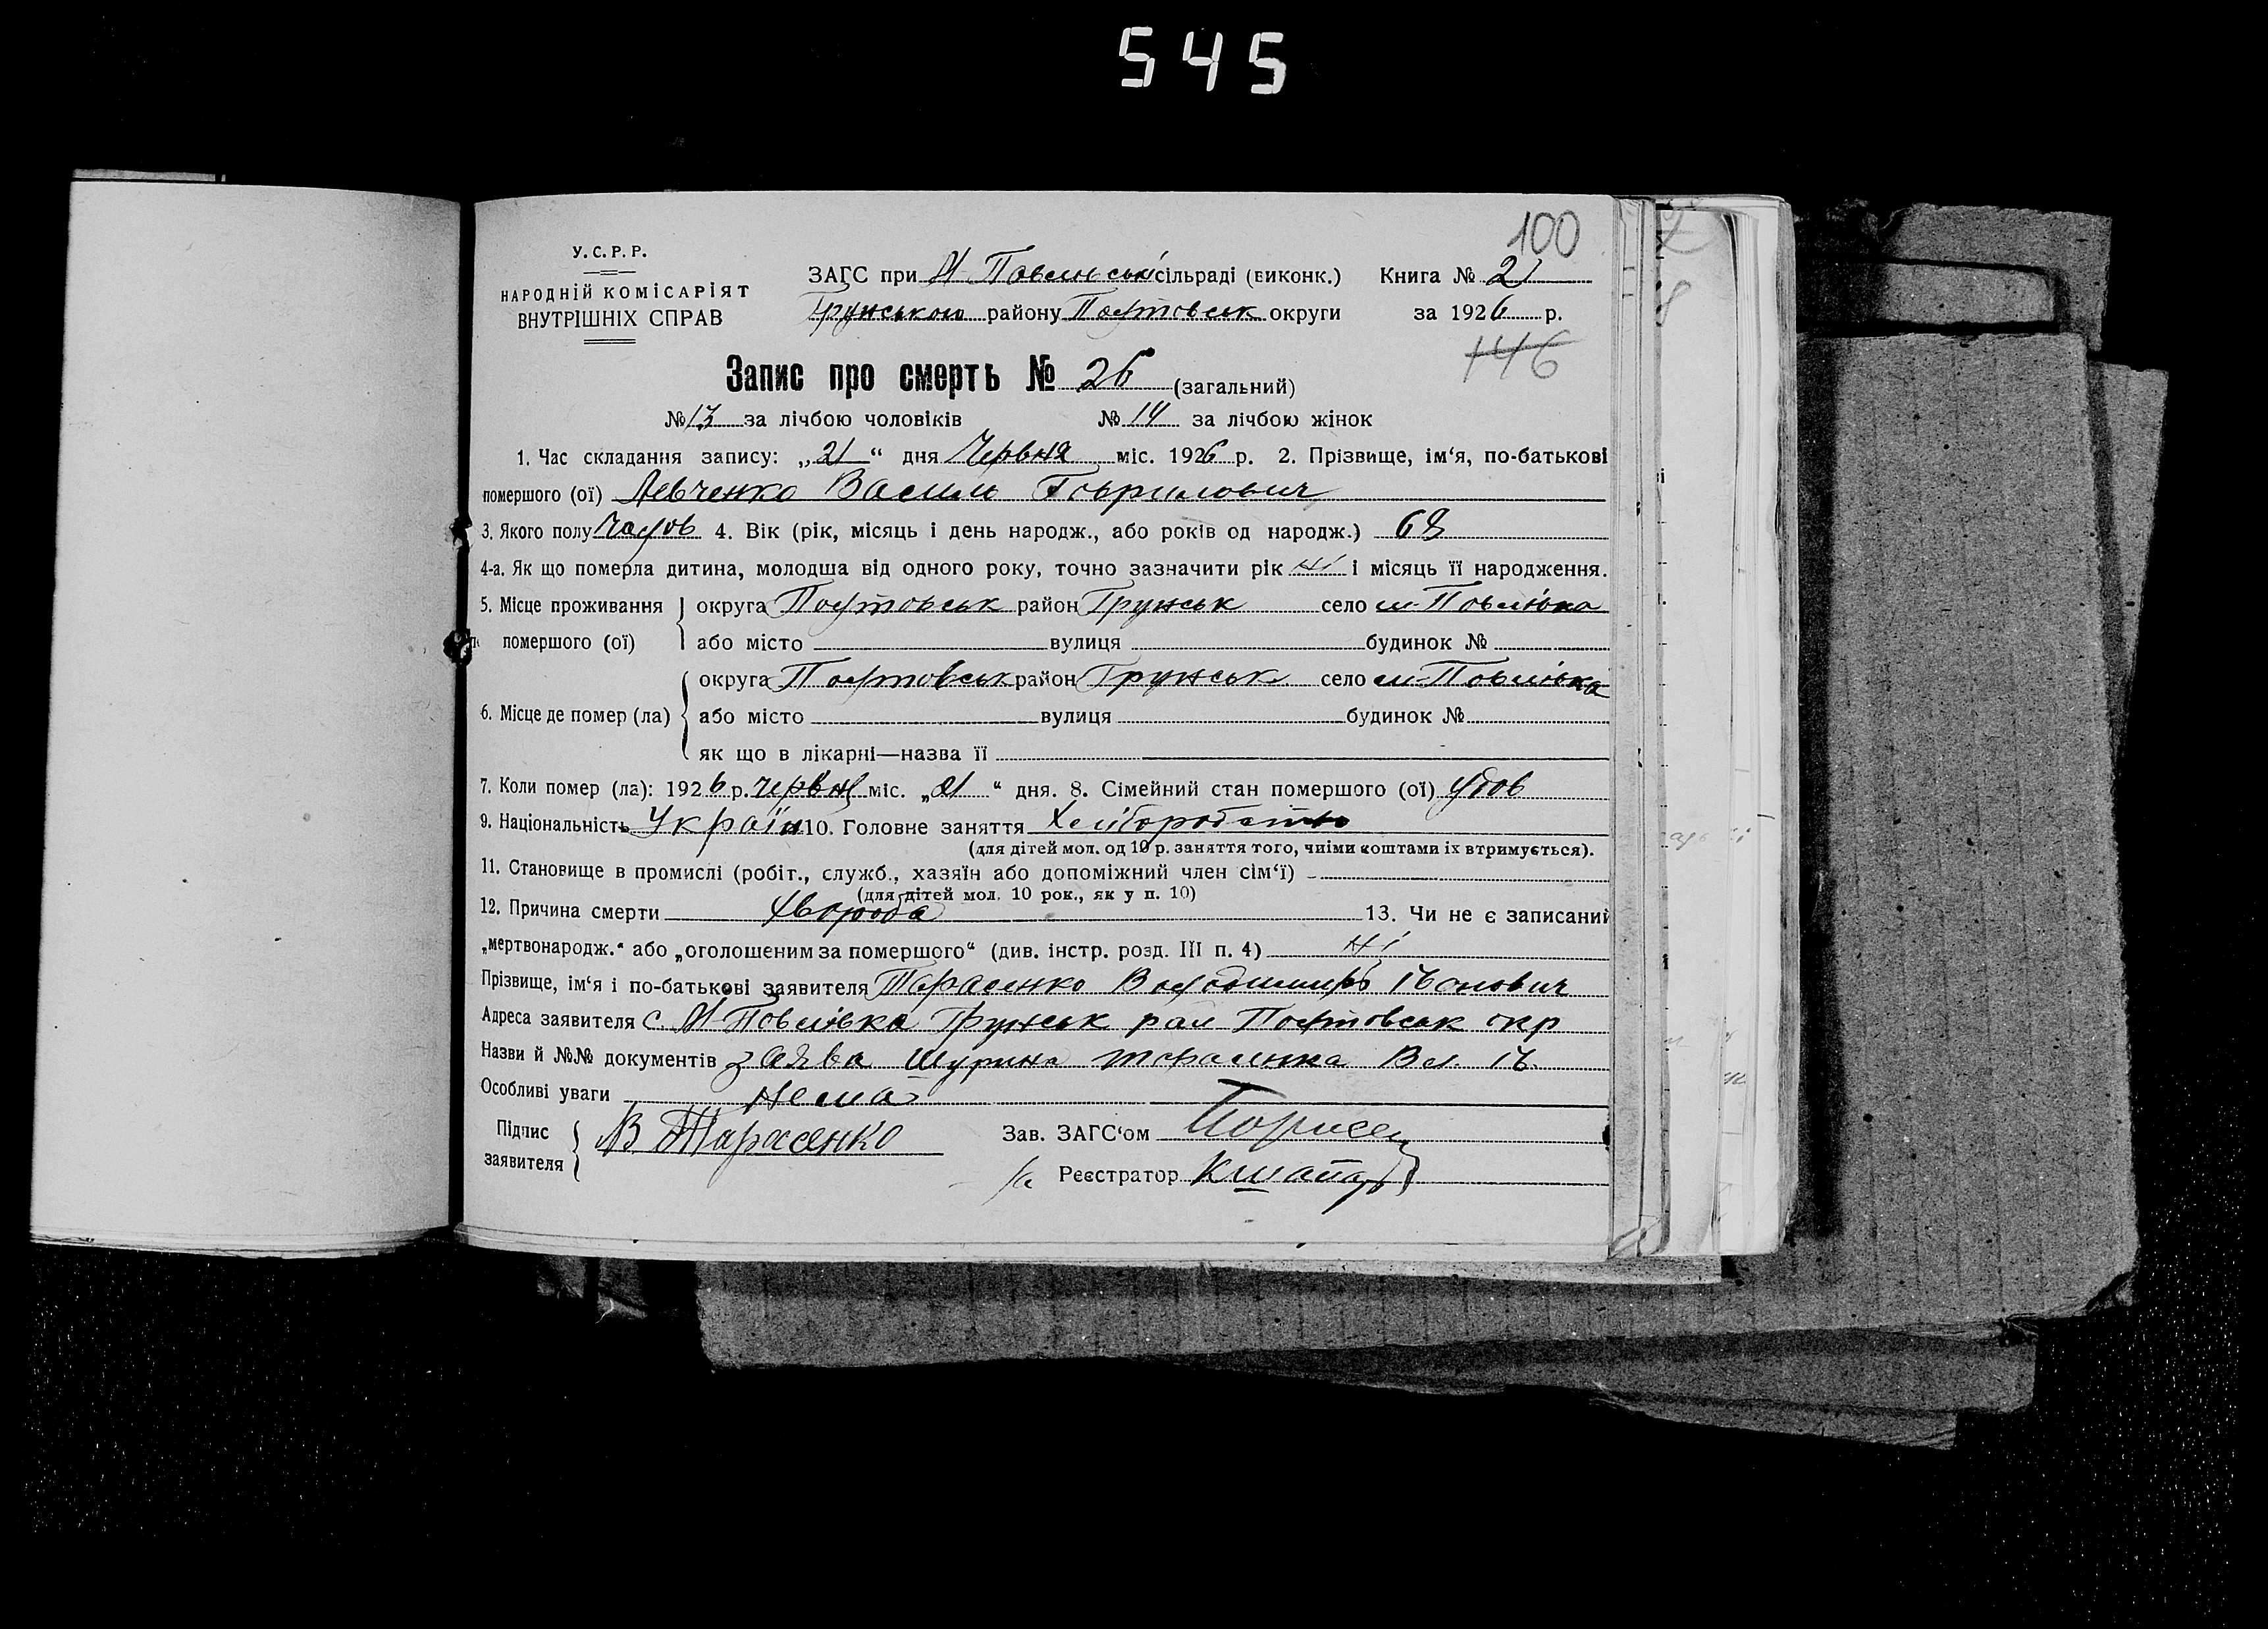 545
100
У.С.Р.Р.
НАРОДНІЙ КОМІСАРІЯТ
ВНУТРІШНІХ СПРАВ
ЗАГС при М Повлівські сільраді (виконк.) Книга № 21
Грунського району Полтовськ округи за 1926 р.
146
Запис про смерть № 26 (загальний)
№ 13 за лічбою чоловіків № 14 за лічбою жінок
1. Час складання запису: „21“ дня Червня міс. 1926 р. 2. Прізвище, ім‘я, по-батькові
помершого (ої) Левченко Василь Говрилович
3. Якого полу Чолов 4. Вік (рік, місяць і день народж., або років од народж.) 68
4-а. Як що померла дитина, молодша від одного року, точно зазначити рік Ні і місяць її народження.
5. Місце проживання округа Полтовськ район Грунськ село М-Повлівка
помершого (ої) або місто вулиця будинок №
округа Полтовськ район Грунськ село М-Повлівка
6. Місце де помер (ла) або місто вулиця будинок №
як що в лікарні—назва її
7. Коли помер (ла): 1926 р. червня міс. „21“ дня. 8. Сімейний стан помершого (ої) удов
9. Національність Україн 10. Головне заняття Хлібороб
(для дітей мол. од 10 р. заняття того, чиїми коштами їх втримується).
11. Становище в промислі (робіт., служб., хазяїн або допоміжний член сім‘ї) -
(для дітей мол. 10 рок., як у п. 10)
12. Причина смерти хвороба 13. Чи не є записаний
„мертвонародж.“ або „оголошеним за помершого“ (див. інстр. розд. III п. 4) Ні
Прізвище, ім‘я і по-батькові заявителя Тарасенко Володимиръ Івонович
Адреса заявителя с. М Повлівка Грунськ рай Полтовськ окр
Назви й №№ документів заява Шурина Тарасенка Вл. Ів.
Особливі уваги нема
Підпис
заявителя В Тарасенко
Зав. ЗАГС‘ом
Реєстратор